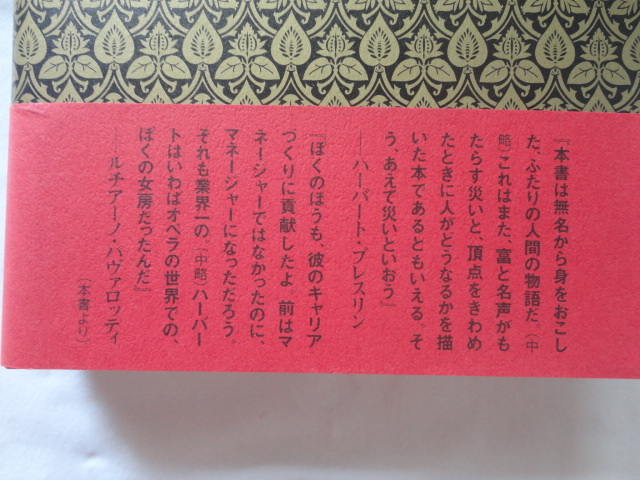 『本書は無名から身をおこし
た、ふたりの人間の物語だ。（中
略）これはまた、富と名声がも
たらす災いと、頂点をきわめ
たときに人がどうなるかを描
いた本であるともいえる。そ
う、あえて災いといおう』
──ハーバート・ブレスリン
『ぼくのほうも、彼のキャリア
づくりに貢献したよ。前はマ
ネージャーではなかったのに、
マネージャーになっただろう。
それも業界一の。（中略）ハーバー
トはいわばオペラの世界での、
ぼくの女房だったんだ』
──ルチアーノ・パヴァロッティ
（本書より）